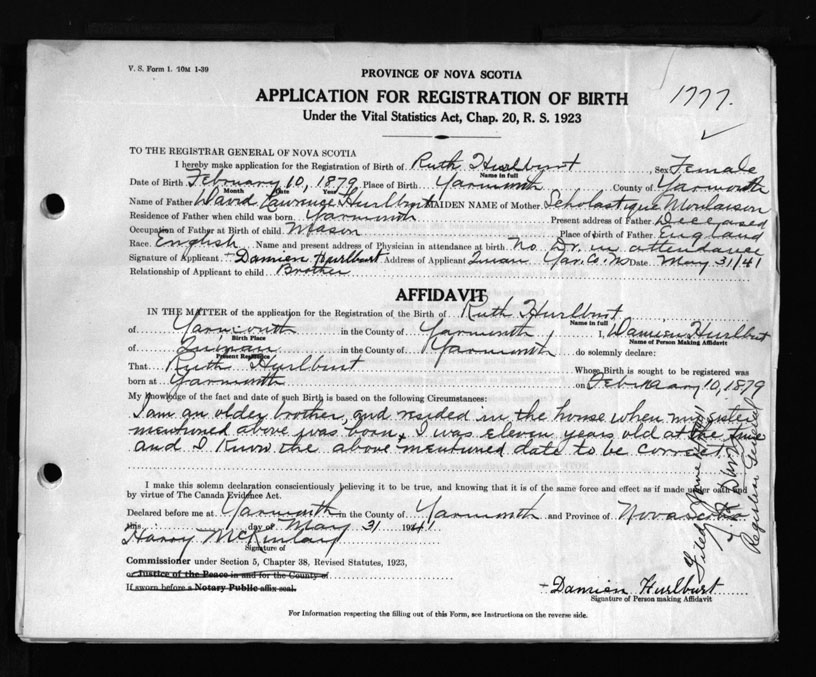 V. S. Form 1. 10M 1-39
PROVINCE OF NOVA SCOTIA
1777.
APPLICATION FOR REGISTRATION OF BIRTH
Under the Vital Statistics Act, Chap. 20, R. S. 1923
TO THE REGISTRAR GENERAL OF NOVA SCOTIA
I hereby make application for the Registration of Birth of Ruth Hurlburt Sex Female
Name in full
Date of Birth February 10, 1879 Place of Birth Yarmouth County of Yarmouth
Month Date Year
Name of Father David Lawrence Hurlburt MAIDEN NAME of Mother Scholastique Moulaison
Residence of Father when child was born Yarmouth Present address of Father Deceased
Occupation of Father at Birth of child Mason Place of birth of Father England
Race. English Name and present address of Physician in attendance at birth. No Dr. in attendance
Signature of Applicant Damien Hurlburt Address of Applicant Quinan Yar. Co. N.S Date May 31/41
Relationship of Applicant to child Brother
AFFIDAVIT
IN THE MATTER of the application for the Registration of the Birth of Ruth Hurlburt
Name in full
of Yarmouth in the County of Yarmouth I, Damien Hurlburt
Birth Place Name of Person Making Affidavit
of Quinan in the County of Yarmouth do solemnly declare:
Present Residence
That Ruth Hurlburt Whose Birth is sought to be registered was
born at Yarmouth on February 10, 1879
My knowledge of the fact and date of such Birth is based on the following Circumstances:
I am an older brother, and resided in the house when my sister
mentioned above was born, I was eleven years old at the time
and I know the above mentioned date to be correct.
I make this solemn declaration conscientiously believing it to be true, and knowing that it is of the same force and effect as if made under oath and
by virtue of The Canada Evidence Act.
Declared before me at Yarmouth in the County of Yarmouth and Province of Nova Scotia
this day of May 31 1941
Harry McKinlay
Signature of
Commissioner under Section 5, Chapter 38, Revised Statutes, 1923,
or Justice of the Peace in and for the County of
If sworn before a Notary Public affix seal.
Damien Hurlburt
Signature of Person making Affidavit
For Information respecting the filling out of this Form, see Instructions on the reverse side.
Filed June
Registrar General